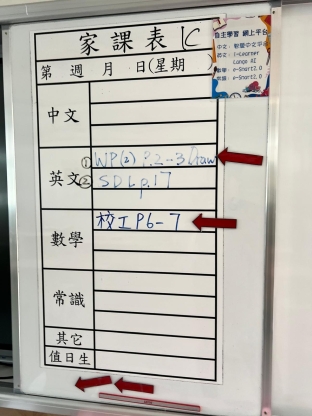 家課表 1C
第 週 月 日(星期 )
中文
英文
① WP(2) P.2-3 Draw
② SDL p.17
數學
校工 P6-7
常識
其它
值日生
自主學習 網上平台
中文: 智愛中文平台
英文: i-Learner
Lango AI
數學: e-Smart2.0
常識: e-Smart2.0